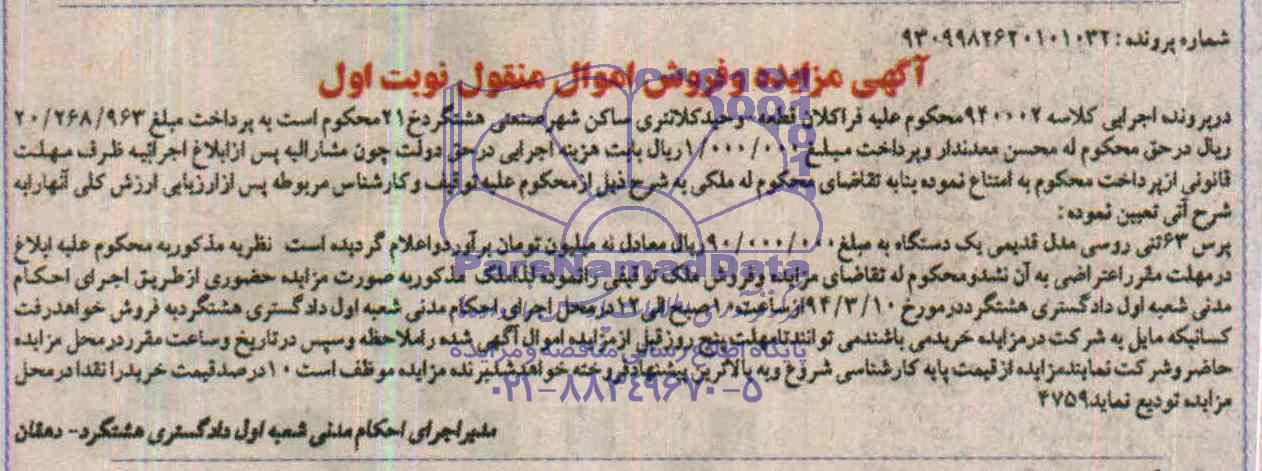 شماره پرونده : ۹۳۰۹۹۸۲۶۲۰۱۰۱۰۳۲
آگهی مزایده وفروش اموال منقول نوبت اول
درپرونده اجرایی کلاسه ۹۴۰۰۰۲محکوم علیه فراکلان قطعه وحیدکلانتری ساکن شهرصنعتی هشتگردخ۲۱محکوم است به پرداخت مبلغ ۲۰/۲۶۸/۹۶۳
ریال درحق محکوم له محسن معدندار وپرداخت مبلغ ۱/۰۰۰/۰۰۰ریال بابت هزینه اجرایی درحق دولت چون مشارالیه پس ازابلاغ اجرائیه ظرف مهلت
قانونی ازپرداخت محکوم به امتناع نموده بنابه تقاضای محکوم له ملکی به شرح ذیل ازمحکوم علیه توقیف وکارشناس مربوطه پس ازارزیابی ارزش کلی آنهارابه
شرح آتی تعیین نموده :
پرس ۶۳تنی روسی مدل قدیمی یک دستگاه به مبلغ۹۰/۰۰۰/۰۰۰ریال معادل نه میلیون تومان برآوردواعلام گردیده است نظریه مذکوربه محکوم علیه ابلاغ
درمهلت مقرراعتراضی به آن نشدومحکوم له تقاضای مزایده وفروش ملک توقیفی رانموده لذاملک مذکوربه صورت مزایده حضوری ازطریق اجرای احکام
مدنی شعبه اول دادگستری هشتگرددرمورخ ۹۴/۳/۱۰ازساعت۱۰صبح الی ۱۲درمحل اجرای احکام مدنی شعبه اول دادگستری هشتگردبه فروش خواهدرفت
کسانیکه مایل به شرکت درمزایده خریدمی باشندمی توانندتامهلت پنج روزقبل ازمزایده اموال آگهی شده راملاحظه وسپس درتاریخ وساعت مقرردرمحل مزایده
حاضروشرکت نمایندمزایده ازقیمت پایه کارشناسی شروع وبه بالاترین پیشنهادفروخته خواهدشدبرنده مزایده موظف است ۱۰درصدقیمت خریدرا نقدا درمحل
مزایده تودیع نماید۴۷۵۹
مدیراجرای احکام مدنی شعبه اول دادگستری هشتگرد- دهقان
ParsNamadData
پایگاه اطلاع رسانی مناقصه ومزایده
۰۲۱-۸۸۳۴۹۶۷۰-۵